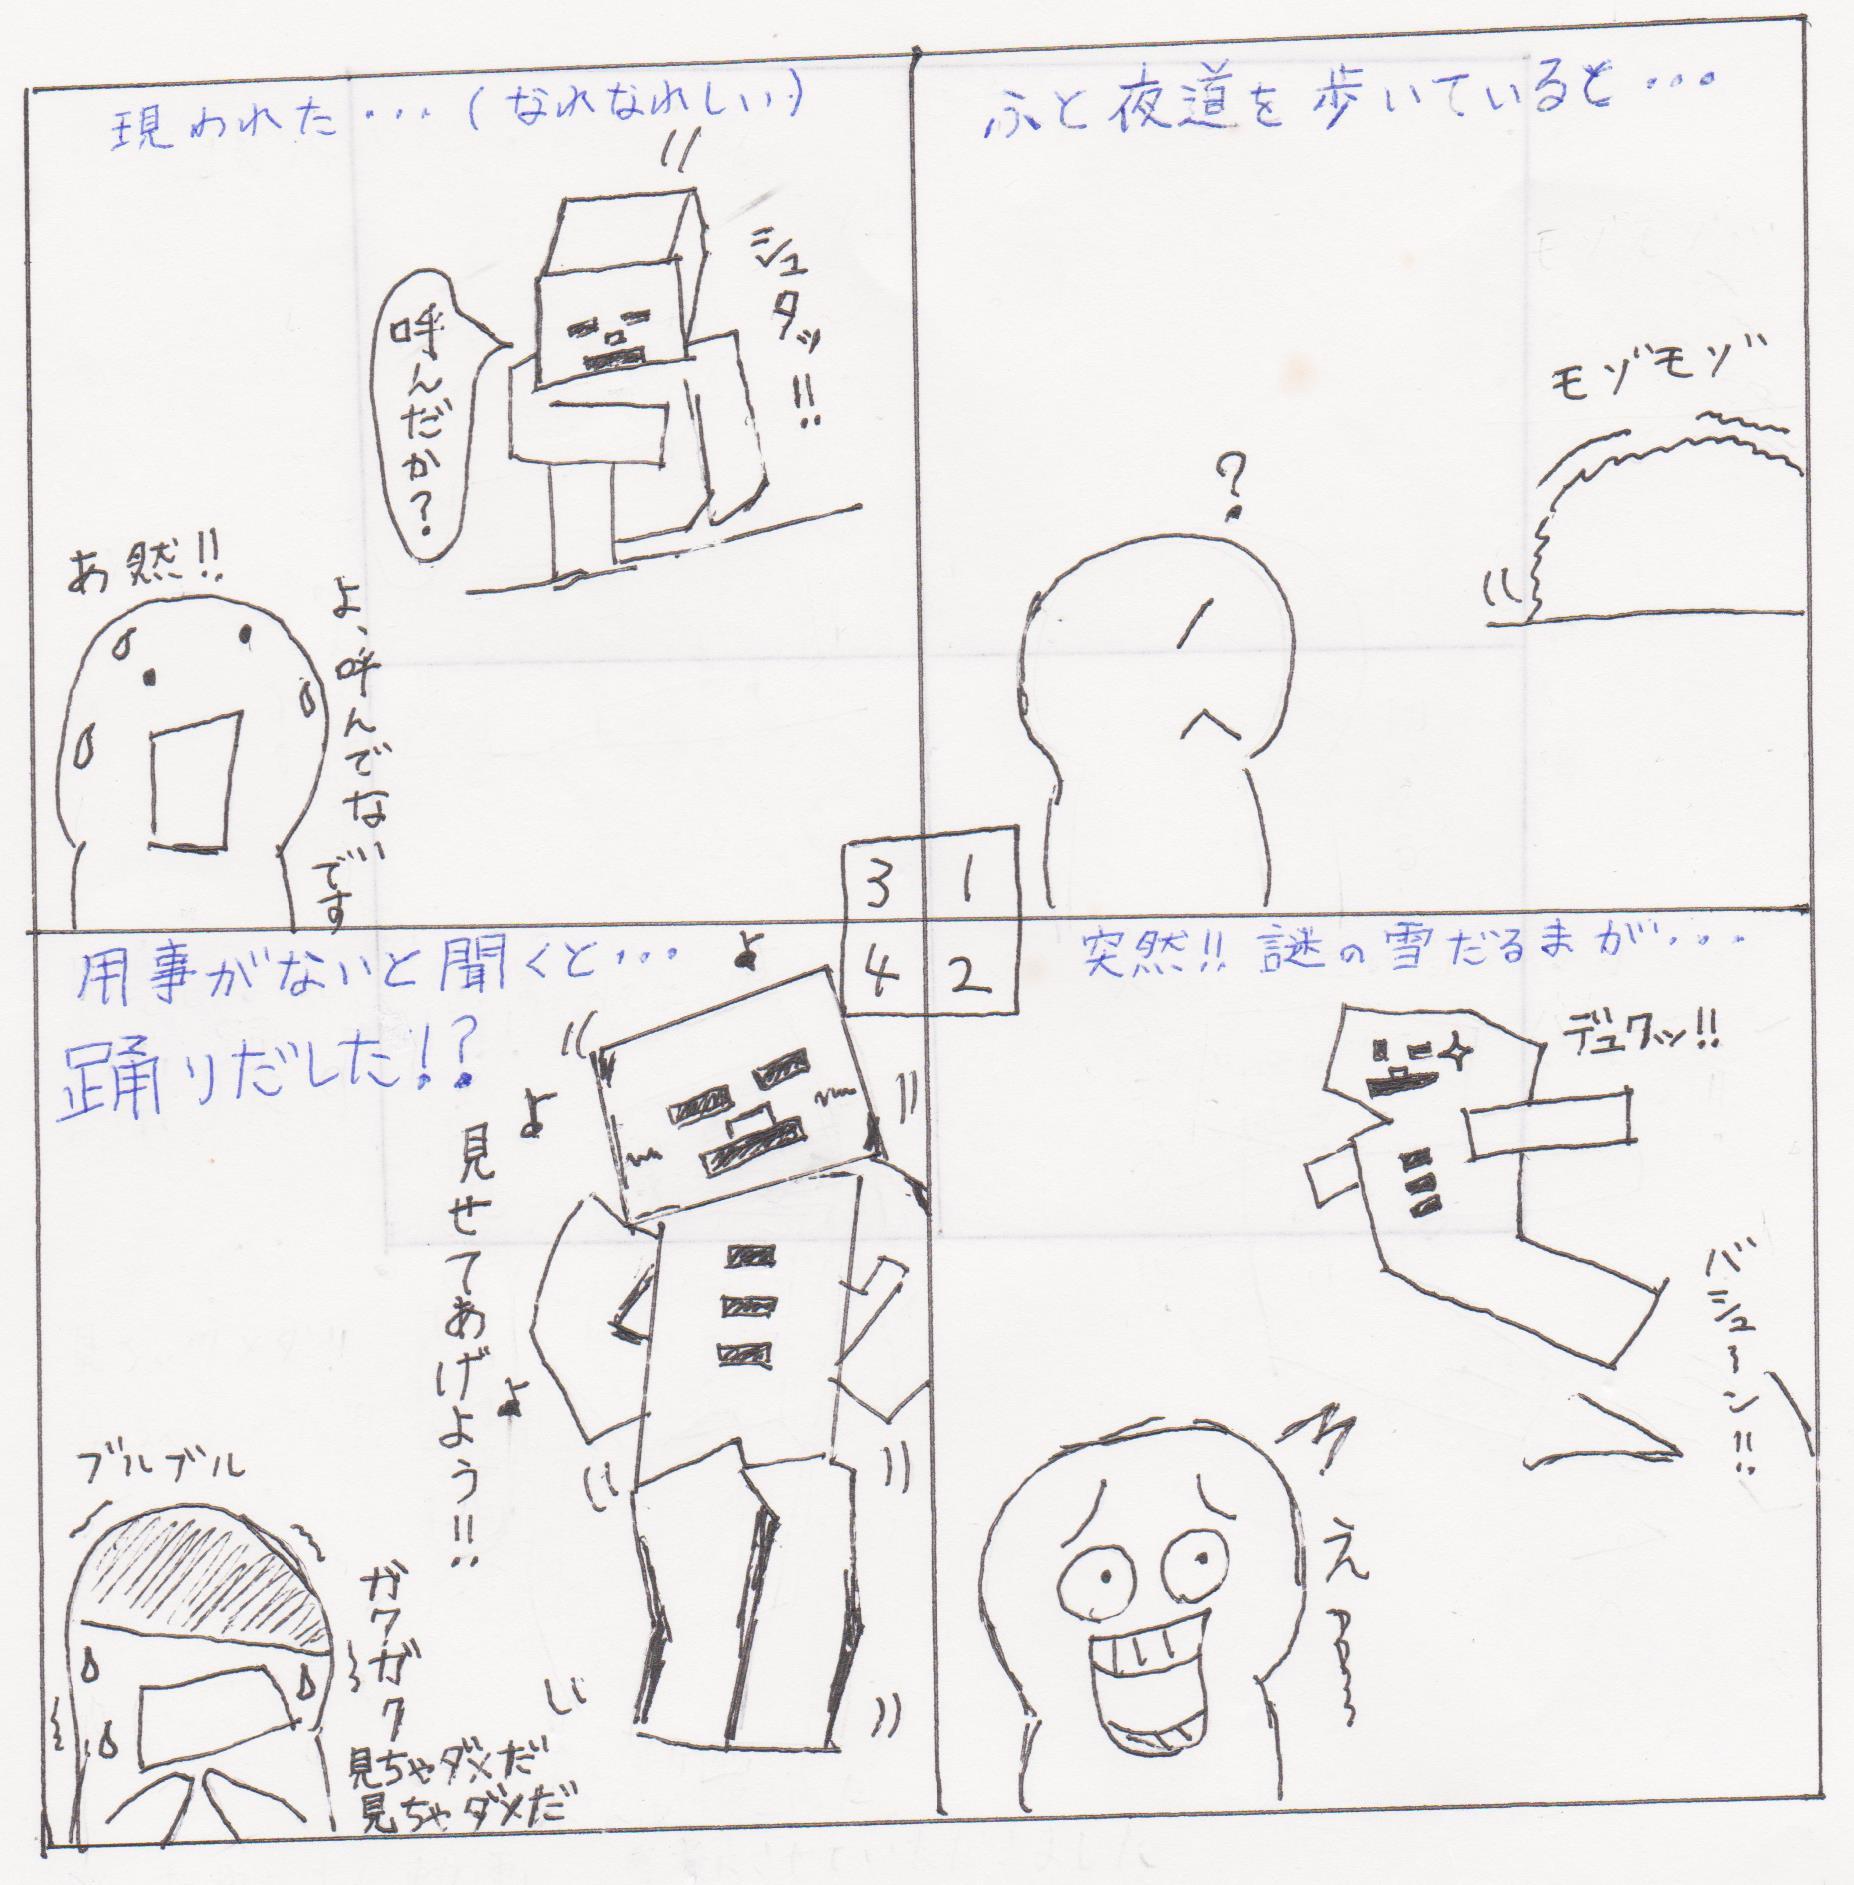 ふと夜道を歩いていると・・・
モゾモゾ
?
突然!! 謎の雪だるまが・・・
デュクッ!!
バシューン!!
え
現われた・・・(なれなれしい)
シュタッ!!
呼んだか?
あ然!!
よ、呼んでない
です
用事がないと聞くと・・・
踊りだした!?
見せてあげよう!!
ブルブル
ガクガク
見ちゃダメだ
見ちゃダメだ
3 1
4 2